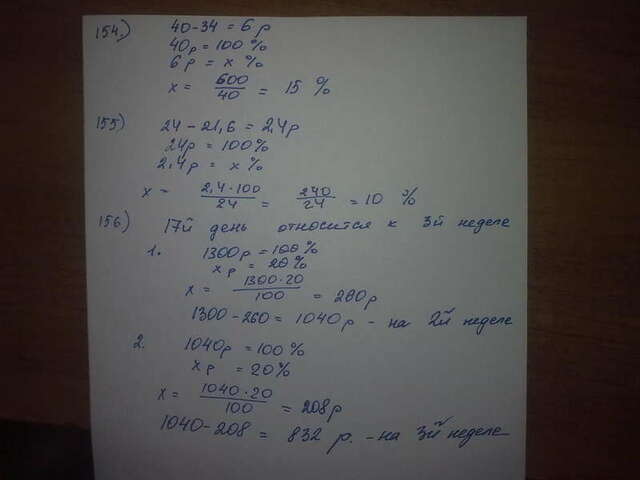 154.) 40-34 = 6 р
40р = 100 %
6р = х %
х = 600/40 = 15 %
155) 24 - 21,6 = 2,4р
24р = 100%
2,4р = х %
х = 2,4·100/24 = 240/24 = 10 %
156.) 17й день относится к 3й неделе
1. 1300р = 100%
хр = 20%
х = 1300·20/100 = 260р
1300-260 = 1040р - на 2й неделе
2. 1040р = 100%
хр = 20%
х = 1040·20/100 = 208р
1040-208 = 832 р. - на 3й неделе